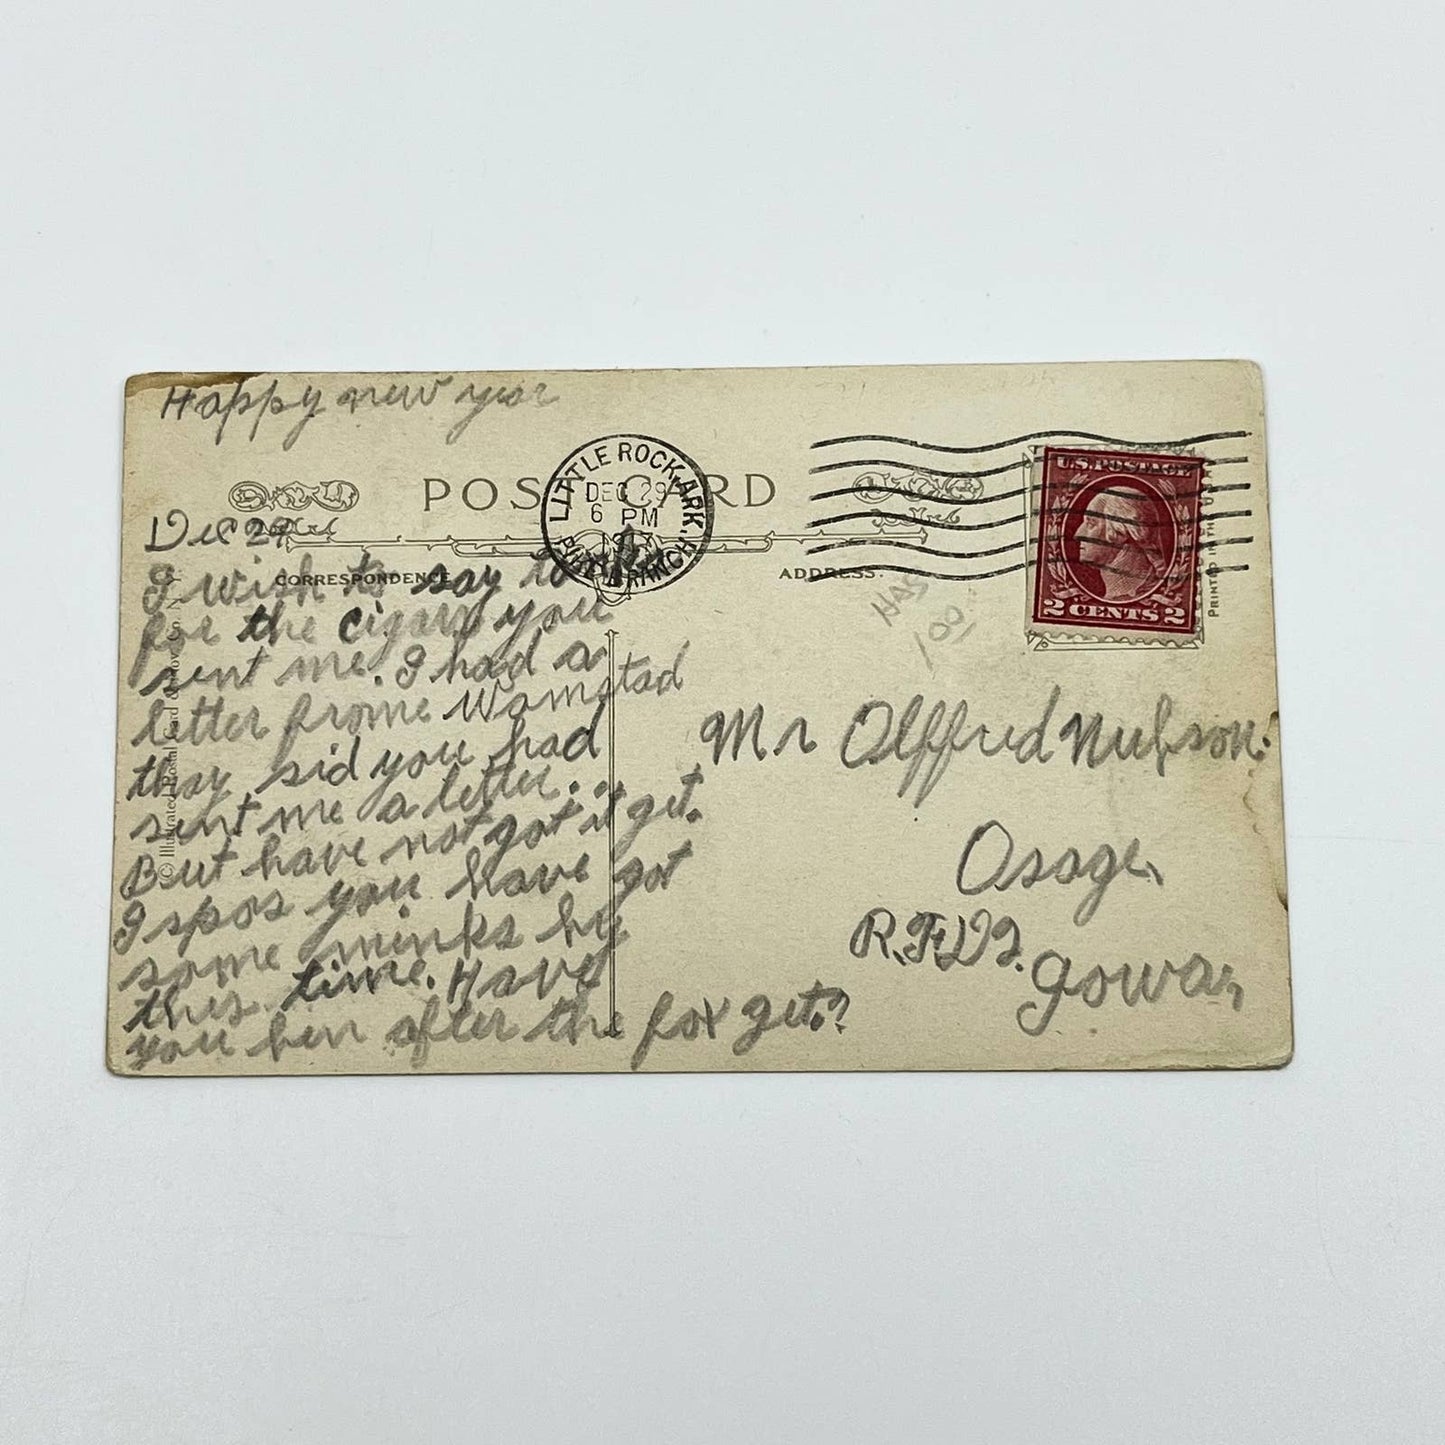 Happy new year
POST CARD
LITTLE ROCK, ARK.
DEC 29
6 PM
1917
BRANCH
U.S. POSTAGE
2 CENTS 2
PRINTED IN THE U.S.A.
CORRESPONDENCE
ADDRESS.
© Illustrated Postal Card & Novelty
Dec 29
I wish to say to
for the cigars you
sent me. I had a
letter frome Womstad
thay sid you had
sent me a letter..
But have not got it yet.
I spos you have got
some minks by
this time. Have
you ben after the fox yet.?
HAS
100
Mr Olffred Nubson.
Osage,
R.F.D 2.
Iowa,